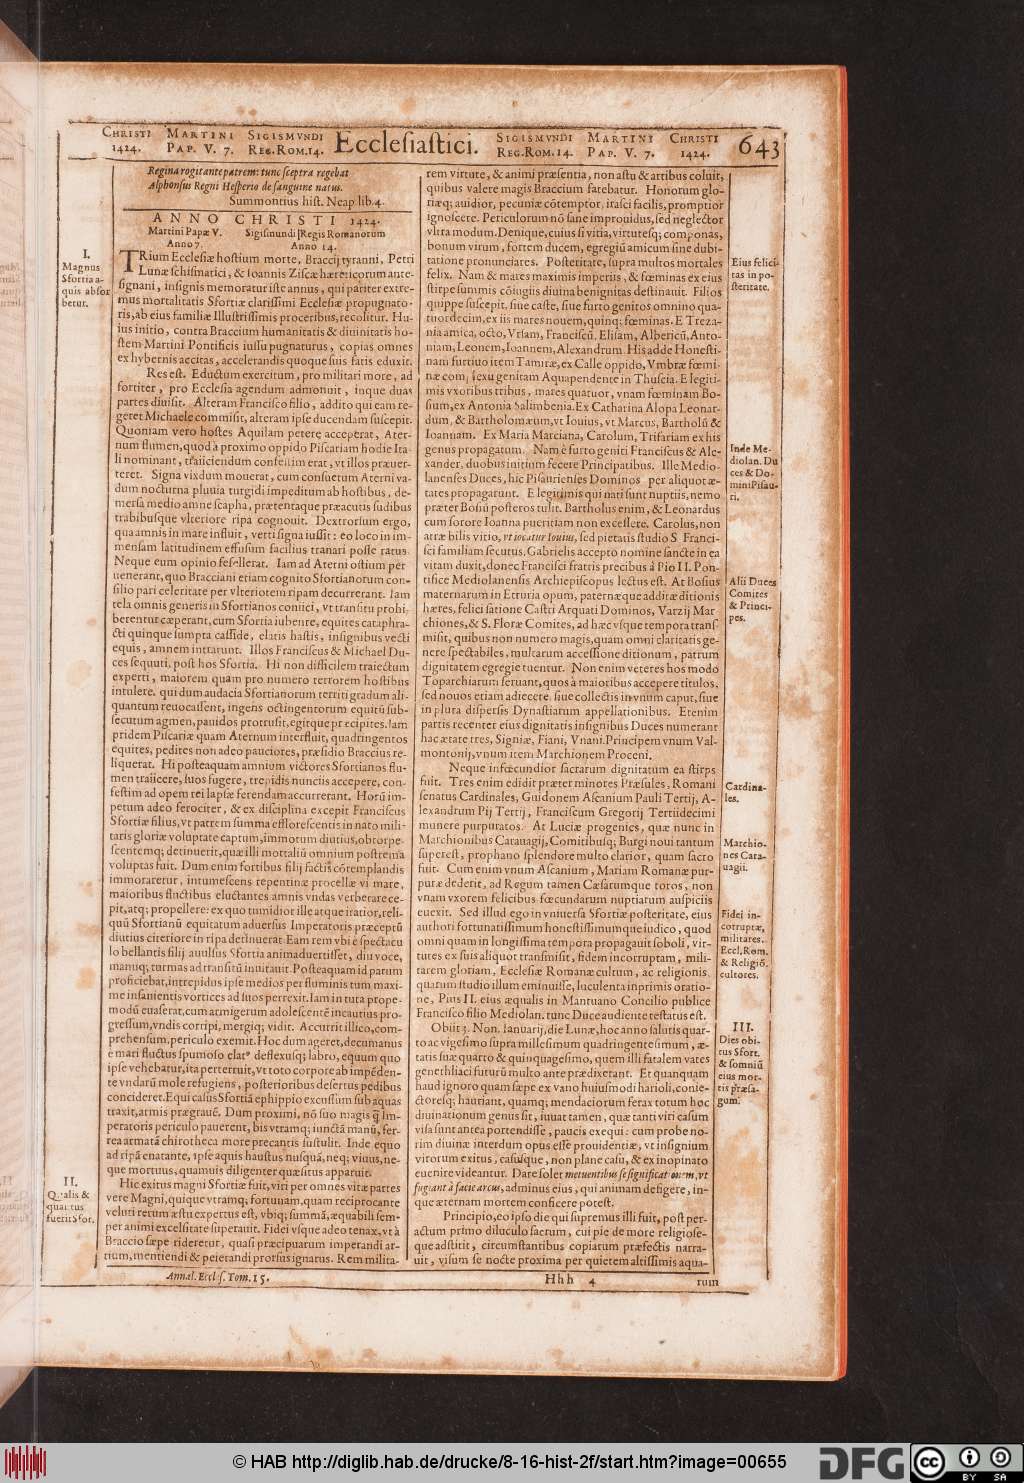 CHRISTI MARTINI SIGISMVNDI Ecclesiastici. SIGISMVNDI MARTINI CHRISTI 643
1424. PAP. V. 7. REG.ROM.14. REG.ROM.14. PAP. V. 7. 1424.
Regina rogitante patrem: tunc sceptra regebat
Alphonsus Regni Hesperio de sanguine natus.
Summontius hist. Neap lib.4.
ANNO CHRISTI 1424.
Martini Papæ V. Sigismundi Regis Romanorum
Anno 7. Anno 14.
I.
Magnus
Sfortia a-
quis absor
betur.
TRium Ecclesiæ hostium morte, Braccij tyranni, Petri
Lunæ schismatici, & Ioannis Ziscæ hæreticorum ante-
signani, insignis memoratur iste annus, qui pariter extre-
mus mortalitatis Sfortiæ clarissimi Ecclesiæ propugnato-
ris, ab eius familiæ Illustrissimis proceribus, recolitur. Hu-
ius initio, contra Braccium humanitatis & diuinitatis ho-
stem Martini Pontificis iussu pugnaturus, copias omnes
ex hybernis accitas, accelerandis quoque suis fatis eduxit.
Res est. Eductum exercitum, pro militari more, ad
fortiter, pro Ecclesia agendum admonuit, inque duas
partes diuisit. Alteram Francisco filio, addito qui eam re-
geret Michaele commisit, alteram ipse ducendam suscepit.
Quoniam vero hostes Aquilam petere acceperat, Ater-
num flumen, quod à proximo oppido Piscariam hodie Ita-
li nominant, traiiciendum confestim erat, vt illos præuer-
teret. Signa vixdum mouerat, cum consuetum Aterni va-
dum nocturna pluuia turgidi impeditum ab hostibus, de-
mersa medio amne scapha, prætentaque præacutis sudibus
trabibusque vlteriore ripa cognouit. Dextrorsum ergo,
qua amnis in mare influit, verti signa iussit: eo loco in im-
mensam latitudinem effusum facilius tranari posse ratus.
Neque eum opinio fefellerat. Iam ad Aterni ostium per
uenerant, quo Bracciani etiam cognito Sfortianorum con-
silio pari celeritate per vlteriorem ripam decurrerant. Iam
tela omnis generis in Sfortianos coniici, vt transitu prohi-
berentur cæperant, cum Sfortia iubente, equites cataphra-
cti quinque sumpta casside, elatis hastis, insignibus vecti
equis, amnem intrarunt. Illos Franciscus & Michael Du-
ces sequuti, post hos Sfortia. Hi non difficilem traiectum
experti, maiorem quam pro numero terrorem hostibus
intulere. qui dum audacia Sfortianorum territi gradum ali-
quantum reuocassent, ingens octingentorum equitū sub-
secutum agmen, pauidos protrusit, egitque præcipites. Iam
pridem Piscariæ quam Aternum interfluit, quadringentos
equites, pedites non adeo pauciores, præsidio Braccius re-
liquerat. Hi posteaquam amnium victores Sfortianos flu-
men traiicere, suos fugere, trepidis nunciis accepere, con-
festim ad opem rei lapsæ ferendam accurrerant. Horū im-
petum adeo ferociter, & ex disciplina excepit Franciscus
Sfortiæ filius, vt patrem summa efflorescentis in nato mili-
taris gloriæ voluptate captum, immotum diutius, obtorpe-
scentemq; detinuerit, quæ illi mortaliū omnium postrema
voluptas fuit. Dum enim fortibus filij factis cōtemplandis
immoraretur, intumescens repentinæ procellæ vi mare,
maioribus fluctibus eluctantes amnis vndas verberare ce-
pit, atq; propellere: ex quo tumidior ille atque iratior, reli-
quū Sfortianū equitatum aduersus Imperatoris præceptū
diutius citeriore in ripa detinuerat. Eam rem vbi è spectacu
lo bellantis filij auulsus Sfortia animaduertisset, diu voce,
manuq; turmas ad transitū inuitauit. Posteaquam id parum
proficiebat, intrepidus ipse medios per fluminis tum maxi-
me insanientis vortices ad suos perrexit. Iam in tuta prope-
modū euaserat, cum armigerum adolescentē incautius pro-
gressum, vndis corripi, mergiq; vidit. Accurrit illico, com-
prehensum, periculo exemit. Hoc dum ageret, decumanus
è mari fluctus spumoso elatꝰ deflexusq; labro, equum quo
ipse vehebatur, ita perterruit, vt toto corpore ab impēden-
te vndarū mole refugiens, posterioribus desertus pedibus
concideret. Equi casus Sfortiā ephippio excussum sub aquas
traxit, armis prægrauē. Dum proximi, nō suo magis q̃ Im-
peratoris periculo pauerent, bis vtramq; iunctā manū, fer-
rea armatā chirotheca more precantis sustulit. Inde equo
ad ripā enatante, ipse aquis haustus nusquā, neq; viuus, ne-
que mortuus, quamuis diligenter quæsitus apparuit.
II.
Qualis &
quantus
fuerit Sfor.
Hic exitus magni Sfortiæ fuit, viri per omnes vitæ partes
vere Magni, quique vtramq; fortunam, quam reciprocante
veluti rerum æstu expertus est, vbiq; summā, æquabili sem-
per animi excelsitate superauit. Fidei vsque adeo tenax, vt à
Braccio sæpe rideretur, quasi præcipuarum imperandi ar-
tium, mentiendi & peierandi prorsus ignarus. Rem milita-
rem virtute, & animi præsentia, non astu & artibus coluit,
quibus valere magis Braccium fatebatur. Honorum glo-
riæq; auidior, pecuniæ cōtemptor, irasci facilis, promptior
ignoscere. Periculorum nō sane improuidus, sed neglector
vltra modum. Denique, cuius si vitia, virtutesq; componas,
bonum virum, fortem ducem, egregiū amicum sine dubi-
tatione pronunciares. Posteritate, supra multos mortales
felix. Nam & mares maximis imperiis, & fœminas ex eius
stirpe summis cōiugiis diuina benignitas destinauit. Filios
quippe suscepit, siue caste, siue furto genitos omnino qua-
tuordecim, ex iis mares nouem, quinq; fœminas. E Treza-
nia amica, octo, Vrsam, Franciscū, Elisam, Albericū, Anto-
niam, Leonem, Ioannem, Alexandrum. His adde Honesti-
nam furtiuo item Tamiræ, ex Calle oppido, Vmbræ fœmi-
næ com, sexu genitam Aquapendente in Thuscia. E legiti-
mis vxoribus tribus, mares quatuor, vnam fœminam Bo-
sium, ex Antonia Salimbenia. Ex Catharina Alopa Leonar-
dum, & Bartholomæum, vt Iouius, vt Marcus, Bartholū &
Ioannam. Ex Maria Marciana, Carolum, Trifariam ex his
genus propagatum. Nam è furto geniti Franciscus & Ale-
xander, duobus initium fecere Principatibus. Ille Medio-
lanenses Duces, hic Pisaurienses Dominos per aliquot æ-
tates propagarunt. E legitimis qui nati sunt nuptiis, nemo
præter Bosiū posteros tulit. Bartholus enim, & Leonardus
cum sorore Ioanna pueritiam non excessere. Carolus, non
atræ bilis vitio, vt iocatur Iouius, sed pietatis studio S. Franci-
sci familiam secutus. Gabrielis accepto nomine sancte in ea
vitam duxit, donec Francisci fratris precibus à Pio II. Pon-
tifice Mediolanensis Archiepiscopus lectus est. At Bosius
maternarum in Etruria opum, paternæque additæ ditionis
hæres, felici satione Castri Arquati Dominos, Varzij Mar
chiones, & S. Floræ Comites, ad hæc vsque tempora trans-
misit, quibus non numero magis, quam omni claritatis ge-
nere spectabiles, multarum accessione ditionum, patrum
dignitatem egregie tuentur. Non enim veteres hos modo
Toparchiarum seruant, quos à maioribus accepere titulos,
sed nouos etiam adiecere siue collectis in vnum caput, siue
in plura dispersis Dynastiarum appellationibus. Etenim
partis recenter eius dignitatis insignibus Duces numerant
hac ætate tres, Signiæ, Fiani, Vnani. Principem vnum Val-
montonij, vnum item Marchionem Proceni.
Neque infœcundior sacrarum dignitatum ea stirps
fuit. Tres enim edidit præter minores Præsules, Romani
senatus Cardinales, Guidonem Ascanium Pauli Tertij, A-
lexandrum Pij Tertij, Franciscum Gregorij Tertiidecimi
munere purpuratos. At Luciæ progenies, quæ nunc in
Marchionibus Carauagij, Comitibusq; Burgi noui tantum
superest, prophano splendore multo clarior, quam sacro
fuit. Cum enim vnum Ascanium, Mariam Romanæ pur-
puræ dederit, ad Regum tamen Cæsarumque toros, non
vnam vxorem felicibus fœcundarum nuptiarum auspiciis
euexit. Sed illud ego in vniuersa Sfortiæ posteritate, eius
authori fortunatissimum honestissimumque iudico, quod
omni quam in longissima tempora propagauit soboli, vir-
tutes ex suis aliquot transmisit, fidem incorruptam, mili-
tarem gloriam, Ecclesiæ Romanæ cultum, ac religionis.
quarum studio illum eminuisse, luculenta inprimis oratio-
ne, Pius II. eius æqualis in Mantuano Concilio publice
Francisco filio Mediolan. tunc Duce audiente testatus est.
Obiit 3. Non. Ianuarij, die Lunæ, hoc anno salutis quar-
to ac vigesimo supra millesimum quadringentesimum, æ-
tatis suæ quarto & quinquagesimo, quem illi fatalem vates
genethliaci futurū multo ante prædixerant. Et quanquam
haud ignoro quam sæpe ex vano huiusmodi harioli, conie-
ctoresq; hauriant, quamq; mendaciorum ferax totum hoc
diuinationum genus sit, iuuat tamen, quæ tanti viri casum
visa sunt antea portendisse, paucis exequi: cum probe no-
rim diuinæ interdum opus esse prouidentiæ, vt insignium
virorum exitus, casusque, non plane casu, & ex inopinato
euenire videantur. Dare solet metuentibus se significationem, vt
fugiant à facie arcus, adminus eius, qui animam desigere, in-
que æternam mortem conficere potest.
Principio, eo ipso die qui supremus illi fuit, post per-
actum primo diluculo sacrum, cui pie de more religiose-
que adstitit, circumstantibus copiarum præfectis narra-
uit, visum se nocte proxima per quietem altissimis aqua-
Eius felici-
tas in po-
steritate.
Inde Me-
diolan. Du
ces & Do-
mini Pisau-
ri.
Alii Duces
Comites
& Princi-
pes.
Cardina-
les.
Marchio-
nes Cara-
uagii.
Fidei in-
corruptæ,
militares.
Eccl. Rom.
& Religiō.
cultores.
III.
Dies obi-
tus Sfort.
& somniū
eius mor-
tis præsa-
gum.
Annal. Eccles. Tom. 15. Hhh 4 rum
© HAB http://diglib.hab.de/drucke/8-16-hist-2f/start.htm?image=00655
DFG
cc BY SA